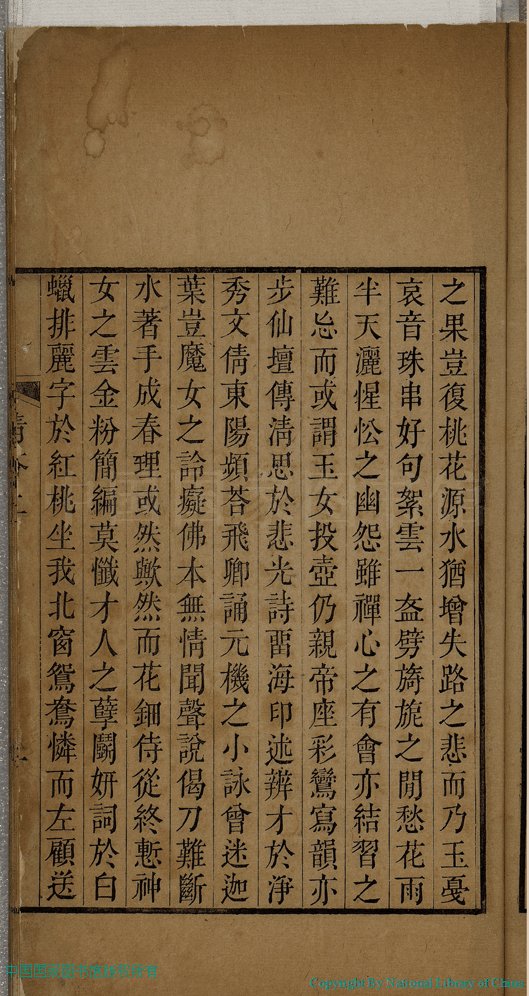 之果豈復桃花源水猶增失路之悲而乃玉戞
哀音珠串好句絮雲一盔劈旖旎之閒愁花雨
半天灑惺忪之幽怨雖禪心之有會亦結習之
難忘而或謂玉女投壺仍親帝座彩鸞寫韻亦
步仙壇傳淸思於悲光詩畱海印述辨才於淨
秀文倩東陽頻荅飛卿誦元機之小詠曾迷迦
葉豈魔女之診癡佛本無情聞聲說偈刀難斷
水著手成春理或然歟然而花鈿侍從終慙神
女之雲金粉簡編莫懺才人之孽鬭妍詞於白
蠟排麗字於紅桃坐我北窗鴛鴦憐而左顧送
Copyright By National Library of China